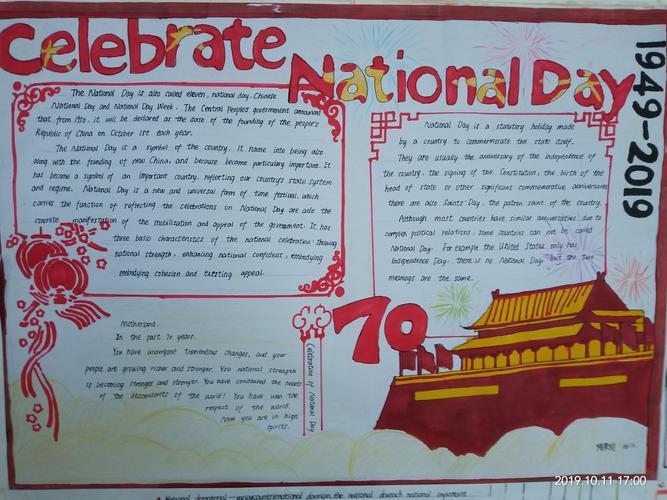 Celebrate
National Day
1949-2019
The National Day is also called eleven, national day, Chinese
National Day and National Day Week. The Central People's government announced
that from 1950, it will be declared as the date of the founding of the people's
Republic of China on October 1st each year.
The National Day is a symbol of the country. It name into being also
along with the founding of new China, and because become particulary important. It
has become a symbol of an important country, reflecting our country's state system
and regime. National Day is a new and universal form of time festival, which
carries the function of reflecting the celebrations on National Day are also the
concrete manifestation of the mobilization and appeal of the government. It has
three basic characteristics of the national celebration: showing
national strength, enhancing national confident, embodying
embodying cohesion and exerting appeal.
National Day is a statutory holiday made
by a country to commemorate the state itself.
They are usually the anniversary of the independence of
the country, the signing of the Constitution, the birth of the
head of state or other significant commemorative anniversaries
there are also Saints' Day, the patron saint of the country.
Although most countries have similar anniversaries due to
complex political relations, some countries can not be called
National Day. For example the United States only has
Independence Day, there is no National Day, but the two
meanings are the same.
70
Motherland.
In the past 70 years.
You have undergone tremendous changes, and your
people are growing richer and stronger. You national strength
is becoming stronger and stronger. You have condensed the hearts
of the descendants of the world! You have won the
respect of the world.
Now you are in high
spirits.
Celebration of National Day
2019.10.11 17:00